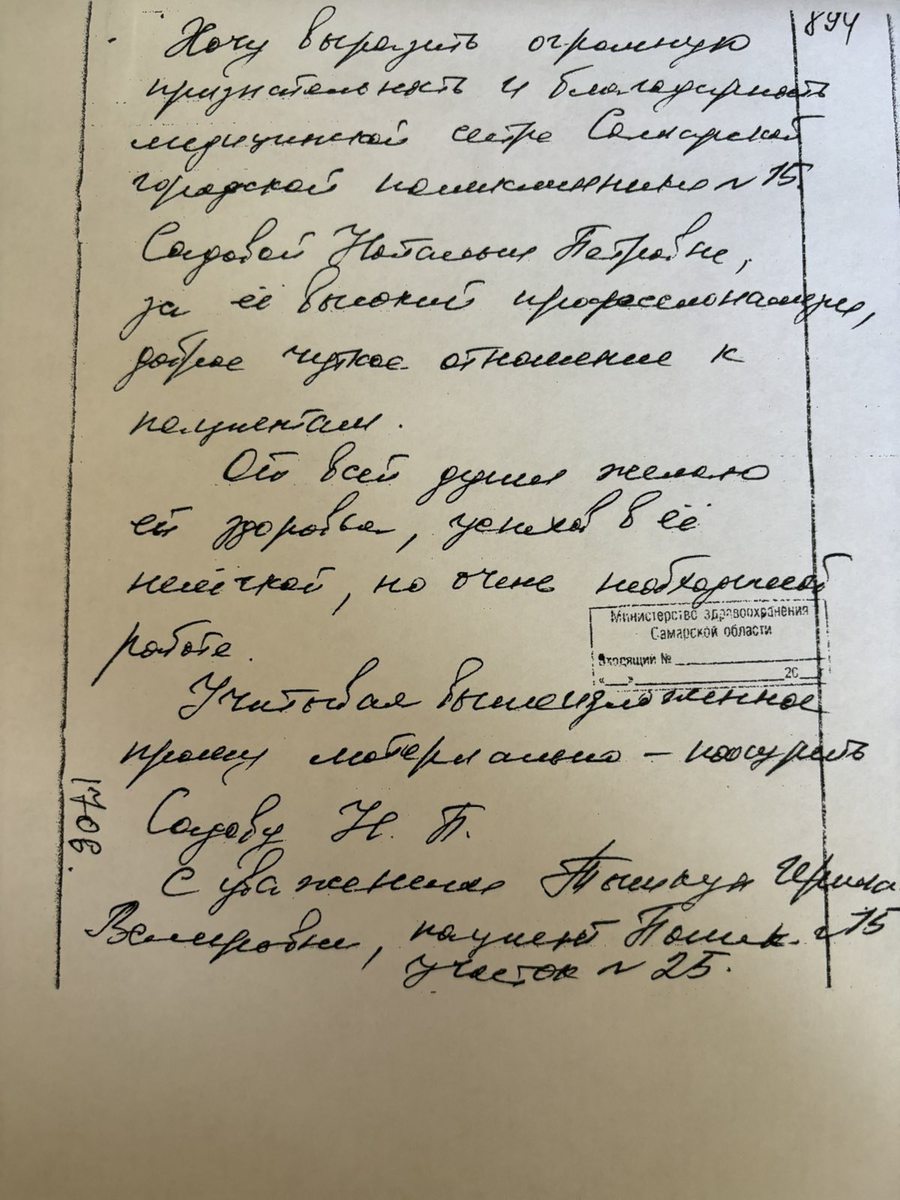 894
Хочу выразить огромную
признательность и благодарность
медицинской сестре Самарской
городской поликлиники № 15
Садовой Наталье Петровне,
за её высокий профессионализм,
доброе чуткое отношение к
пациентам.
От всей души желаю
ей здоровья, успехов в её
нелёгкой, но очень необходимой
работе.
Министерство здравоохранения
Самарской области
Входящий №
«__»____20__
Учитывая вышеизложенное
прошу материально - поощрить
Садову Н. П.
С уважением Ирина
пациент Полик. № 15
участок № 25.
1706